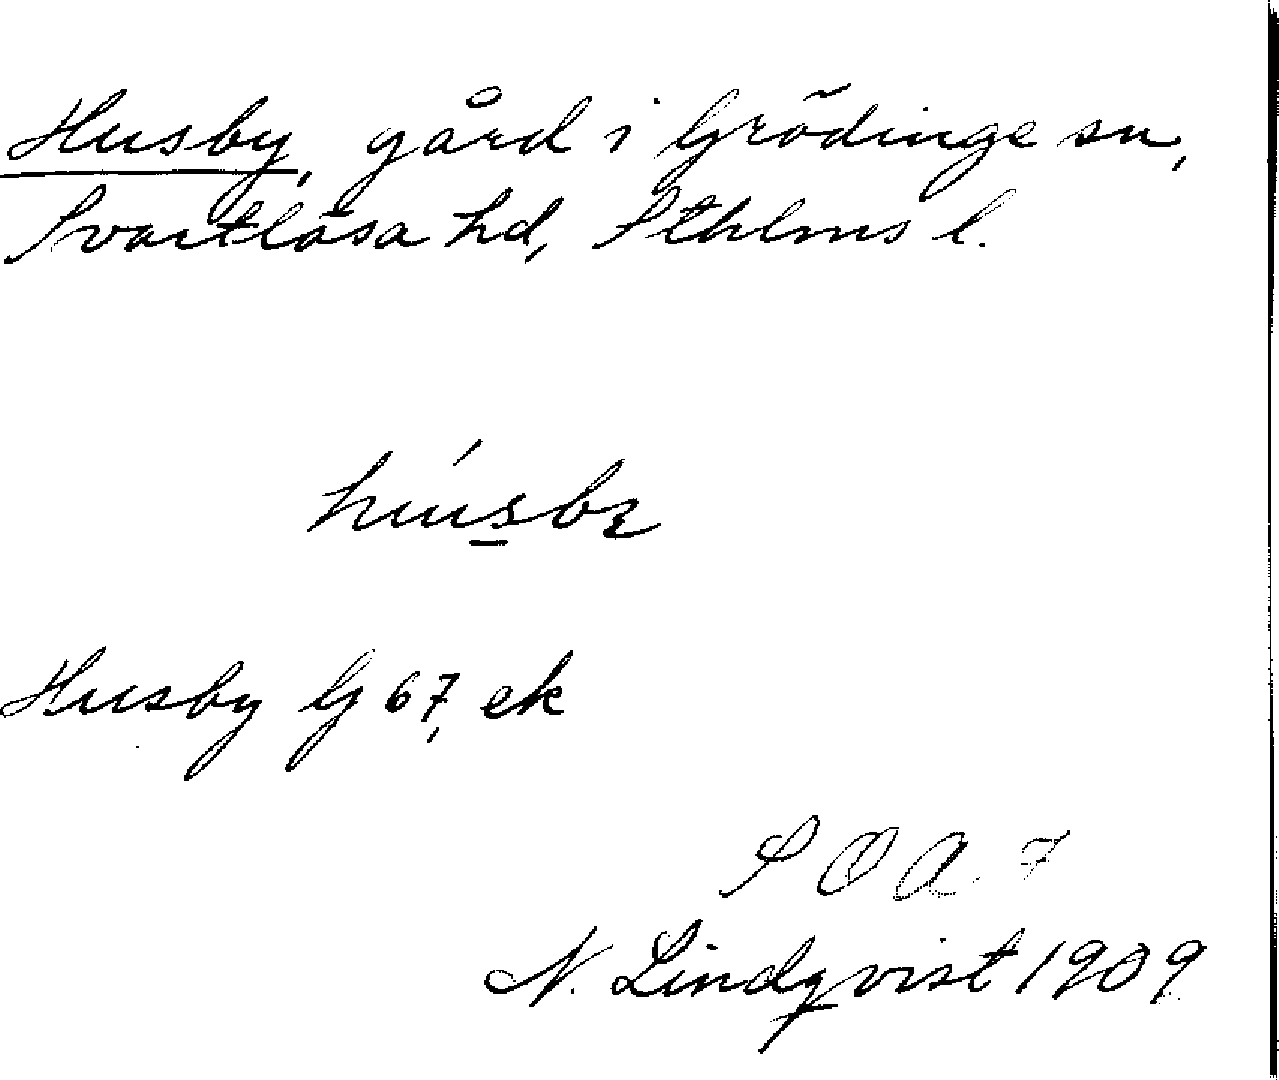 Husby, gård i Grödinge sn,
Svartlösa hd, Sthlms l.
húsbı
Husby G 67, ek
S O A. 7
N. Lindqvist 1909